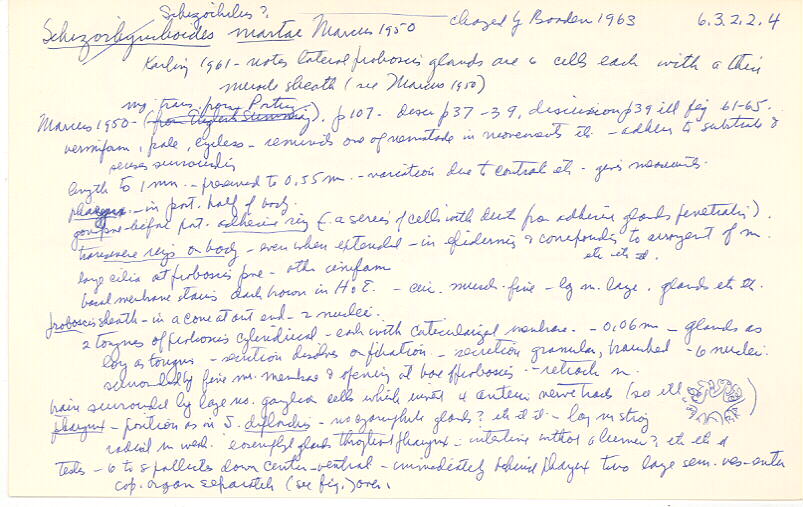 Schizochilus?
Schizorhynchoides martae Marcus 1950 changed by Boaden 1963 6.3.2.2.4
Karling 1961 - notes lateral proboscis glands are 6 cells each with a thin
muscle sheath (see Marcus 1950)
my trans. from Portug.
Marcus 1950 - (from English Summary). p107 - descr p37-39, discussion p39 ill fig 61-65.
vermiform, pale, eyeless - reminds one of nematode in movements etc. - adheres to substrate &
senses surrounding
length to 1 mm. - preserved to 0,55 m. - variation due to contract. etc. - gives measurements.
pharynx - in post. half of body.
gonopore before post. adhesive ring (- a series of cells with ducts from adhesive glands penetrating).
transverse rings on body - even when extended - in epidermis & corresponds to arrangement of m.
etc etc etc.
long cilia at proboscis pore - other uniform
basal membrane stains dark brown in H & E. - circ. muscle fine - lg m. large. glands etc etc.
proboscis sheath - in a cone at ant end - 2 nuclei.
2 tongues of proboscis cylindrical - each with cuticularized membrane. - 0,06 m - glands as
long as tongues - secretion dissolves on fixation - secretion granular, branched - 6 nuclei.
surrounded by fine m. membrane & opening at base of proboscis - retract. m.
brain surrounded by large no. ganglion cells which unite 4 anterior nerve tracts (see ill )
pharynx - position as in S. diplorchis - no cyanophile glands? etc etc - long m strong
radial m weak. eosinophil glands throughout pharynx - intestine without a lumen?, etc etc
testes - 6 to 8 follicles down center-ventral - immediately behind pharynx two large sem. ves - enter
cop. organ separately (see fig.) over.